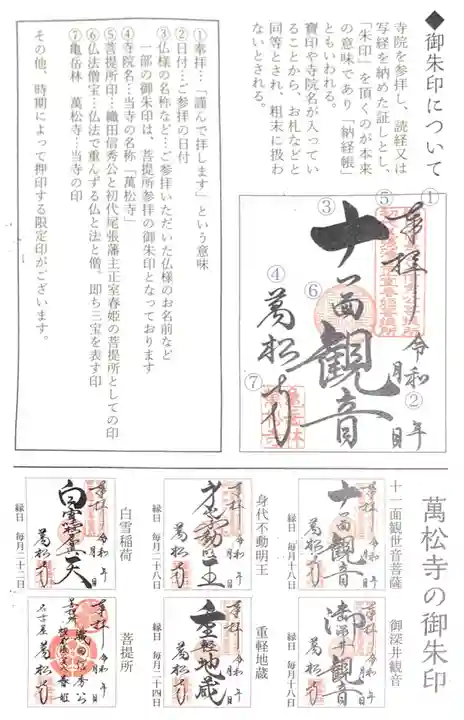 ◆御朱印について
寺院を参拝し、読経又は
写経を納めた証しとし、
「朱印」を頂くのが本来
の意味であり「納経帳」
ともいわれる。
寶印や寺院名が入ってい
ることから、お札などと
同等とされ、粗末に扱わ
ないとされる。
①
奉拝
⑤
令和 年 月 日
②
③
十一面観音
⑥
④
萬松寺
⑦
亀岳林
萬松寺
①奉拝…「謹んで拝します」という意味
②日付…ご参拝の日付
③仏様の名称など…ご参拝いただいた仏様のお名前など
一部の御朱印は、菩提所参拝の御朱印となっております
④寺院名…当寺の名称「萬松寺」
⑤菩提所印…織田信秀公と初代尾張藩主正室春姫の菩提所としての印
⑥仏法僧宝…仏法で重んずる仏と法と僧。即ち三宝を表す印
⑦亀岳林 萬松寺…当寺の印
その他、時期によって押印する限定印がございます。
萬松寺の御朱印
十一面観世音菩薩
奉拝 令和 年 月 日
十一面観音
萬松寺
縁日 毎月十八日
身代不動明王
奉拝 令和 年 月 日
萬松寺
縁日 毎月二十八日
白雪稲荷
奉拝 令和 年 月 日
萬松寺
縁日 毎月二十二日
御深井観音
奉拝 令和 年 月 日
御深井観音
萬松寺
縁日 毎月十八日
重軽地蔵
奉拝 令和 年 月 日
重軽地蔵
萬松寺
縁日 毎月二十四日
菩提所
奉拝 令和 年 月 日
織田信秀公
春姫
名古屋 萬松寺